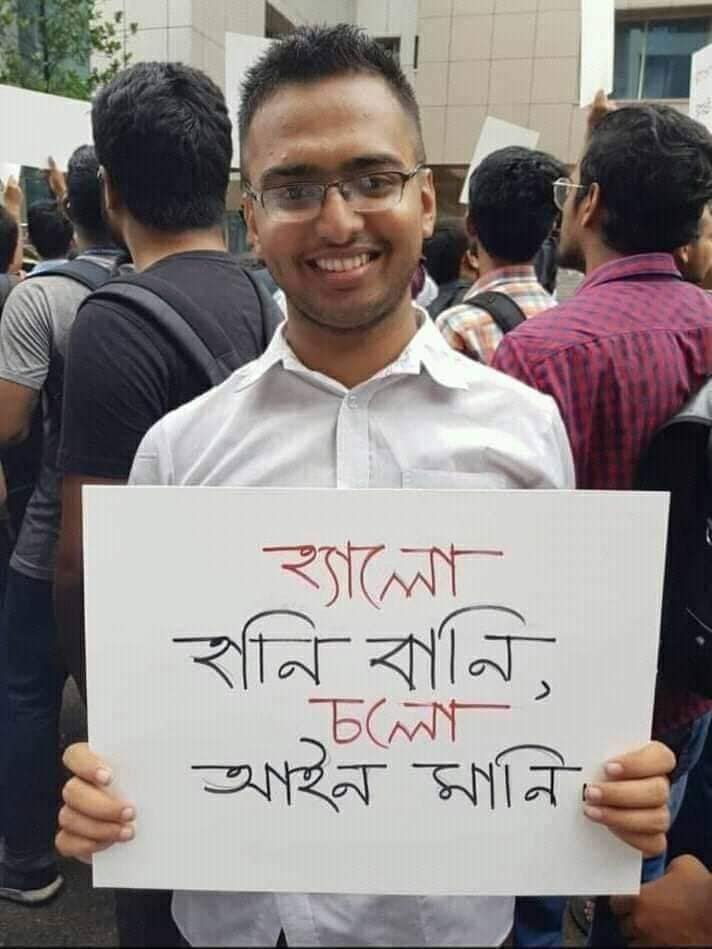 হ্যালো
হানি বানি,
চলো
আইন মানি.